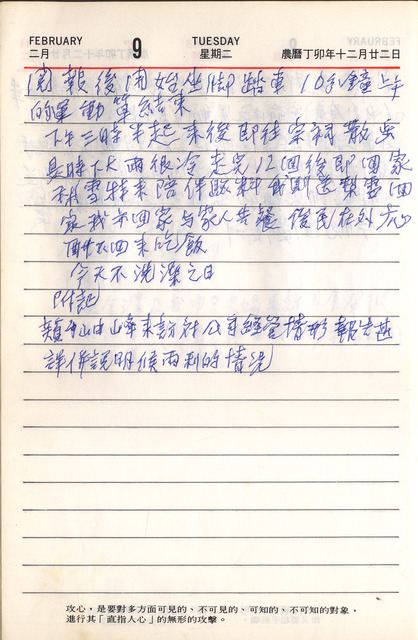 FEBRUARY 9 TUESDAY
二月 星期二 農曆丁卯年十二月廿二日
閱報後開始坐脚踏車 10分鐘上午
的運動算結束
下午三時半起來後即往宗祠散步
是時下大雨很冷 走完12個後即回家
秋雪特來陪伴照料 即送梨雲回
家 我亦回家与家人共餐 俊民在外
回來吃飯
今天不洗澡之日
附記
山峰來訪 公司經營情形報告
詳併說明 的情況
攻心,是要對多方面可見的、不可見的、可知的、不可知的對象,
進行其「直指人心」的無形的攻擊。